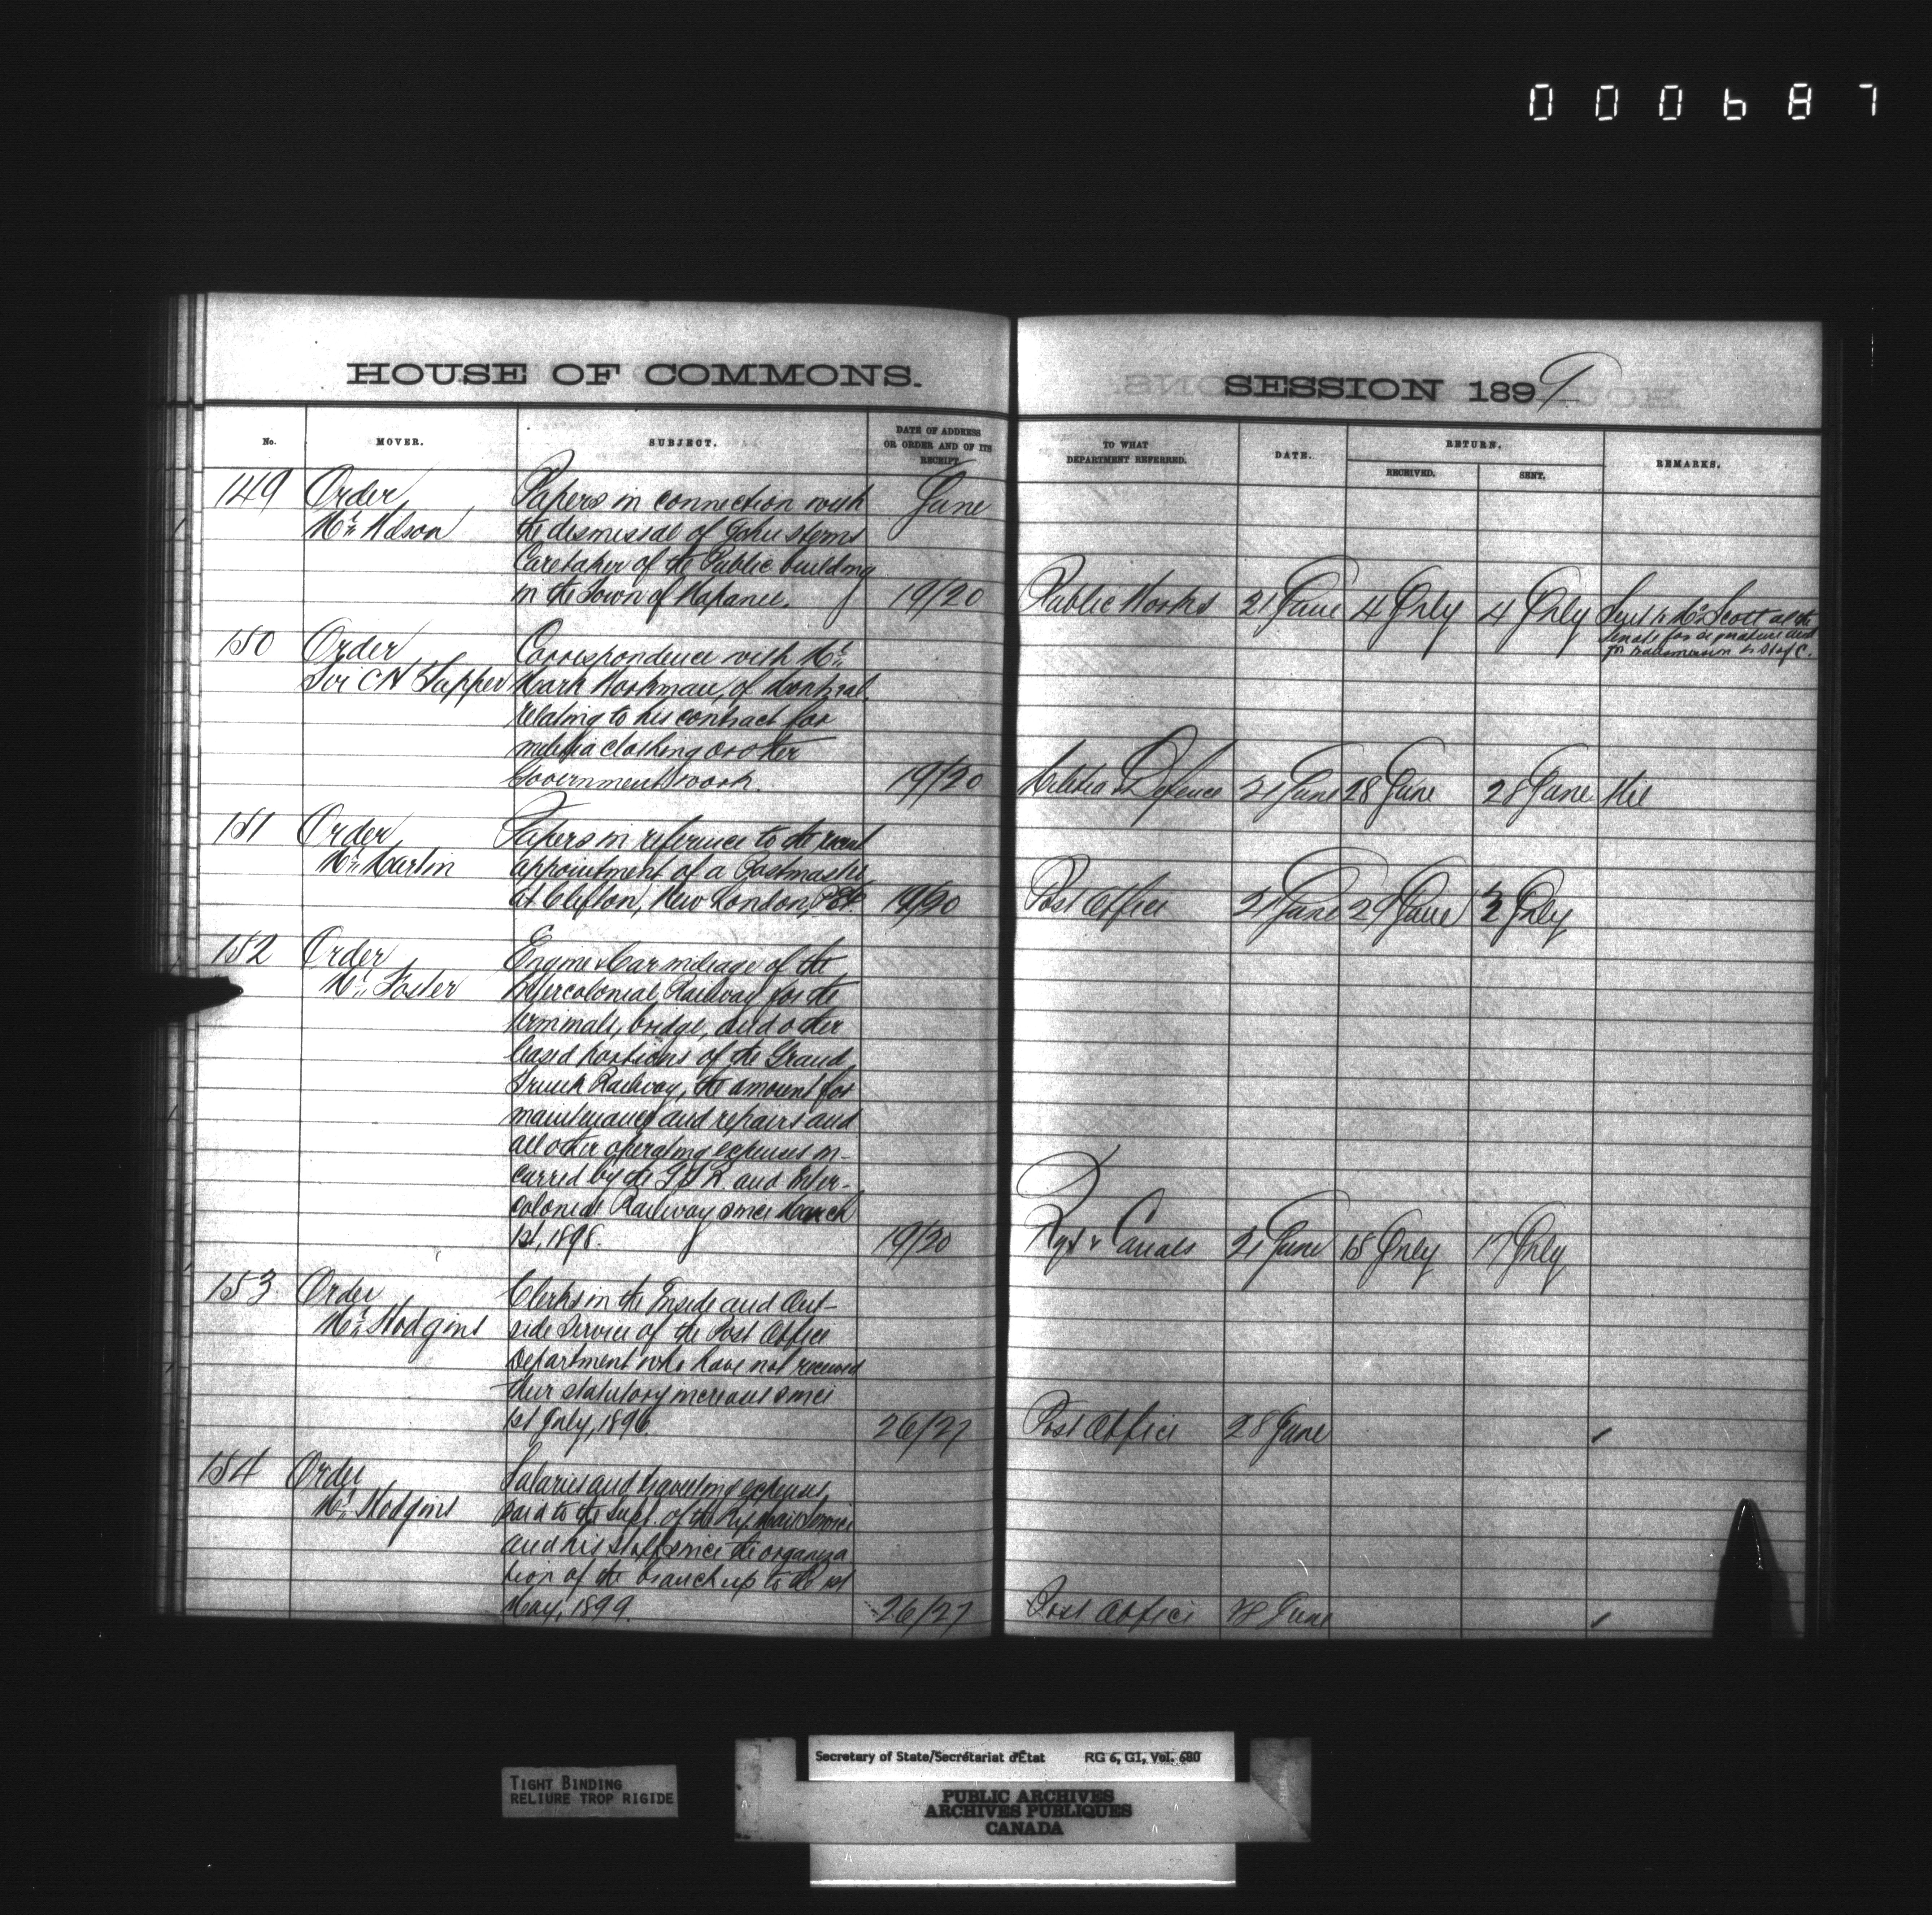 000687
HOUSE OF COMMONS.
SESSION 1899
No.
MOVER.
SUBJECT.
DATE OF ADDRESS
OR ORDER AND OF ITS
RECEIPT.
TO WHAT
DEPARTMENT REFERRED.
DATE.
RETURN.
RECEIVED.
SENT.
REMARKS.
149 Order Papers in connection with June
Mr. Wilson the dismissal of John Stems
Caretaker of the Public building
in the Town of Napanee. 19/20 Public Works 21 June 4 July 4 July Sent to Mr Scott at the
Senate for signature and
for transmission to H of C.
150 Order Correspondence with Mr.
Sir C H Tupper Mark Workman, of Montreal
relating to his contract for
militia clothing or other
Government work. 19/20 Militia & Defence 21 June 28 June 28 June Nil
151 Order Papers in reference to the recent
Mr. Martin appointment of a Postmaster
at Clifton, New London, P.E.I. 19/20 Post Office 21 June 29 June 3 July
152 Order Engine & Car mileage of the
Mr. Foster Intercolonial Railway for the
terminals, bridge, and other
leased portions of the Grand
Trunk Railway, the amount for
maintenance and repairs and
all other operating expenses in-
curred by the G.T.R. and Inter-
colonial Railway since March
1st, 1898. 19/20 Rys & Canals 21 June 15 July 17 July
153 Order Clerks in the Inside and Out-
Mr. Hodgins side Service of the Post Office
Department who have not received
their statutory increase since
1st July, 1896. 26/27 Post Office 28 June
154 Order Salaries and travelling expenses
Mr. Hodgins paid to the Supt. of the Ry. Mail Service
and his staff since the organiza
tion of the branch up to the 1st
May, 1899. 26/27 Post Office 28 June
TIGHT BINDING
RELIURE TROP RIGIDE
Secretary of State/Secrétariat d'État RG 6, G1, Vol. 680
PUBLIC ARCHIVES
ARCHIVES PUBLIQUES
CANADA